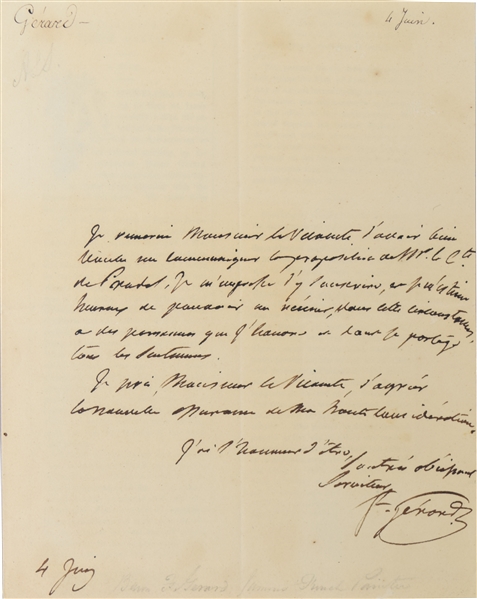 Gérard —
4 Juin.
Je remercie Monsieur le Vicomte, d'avoir bien
voulu me communiquer la proposition de Mr. le Cte.
de Pradel, Je m'empresse d'y souscrire, et je m'estime
heureux de pouvoir me réunir, dans cette circonstance,
a des personnes que j'honore et dont je partage
tous les sentimens.
Je prie, Monsieur le Vicomte, d'agréer
la nouvelle assurance de ma haute considération.
J'ai l'honneur d'être,
très obéissant
Serviteur
F. Gérard
4 Juin
Baron F. Gerard famous French Painter